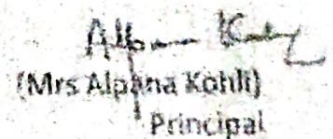 (Mrs Alpana Kohli)
Principal